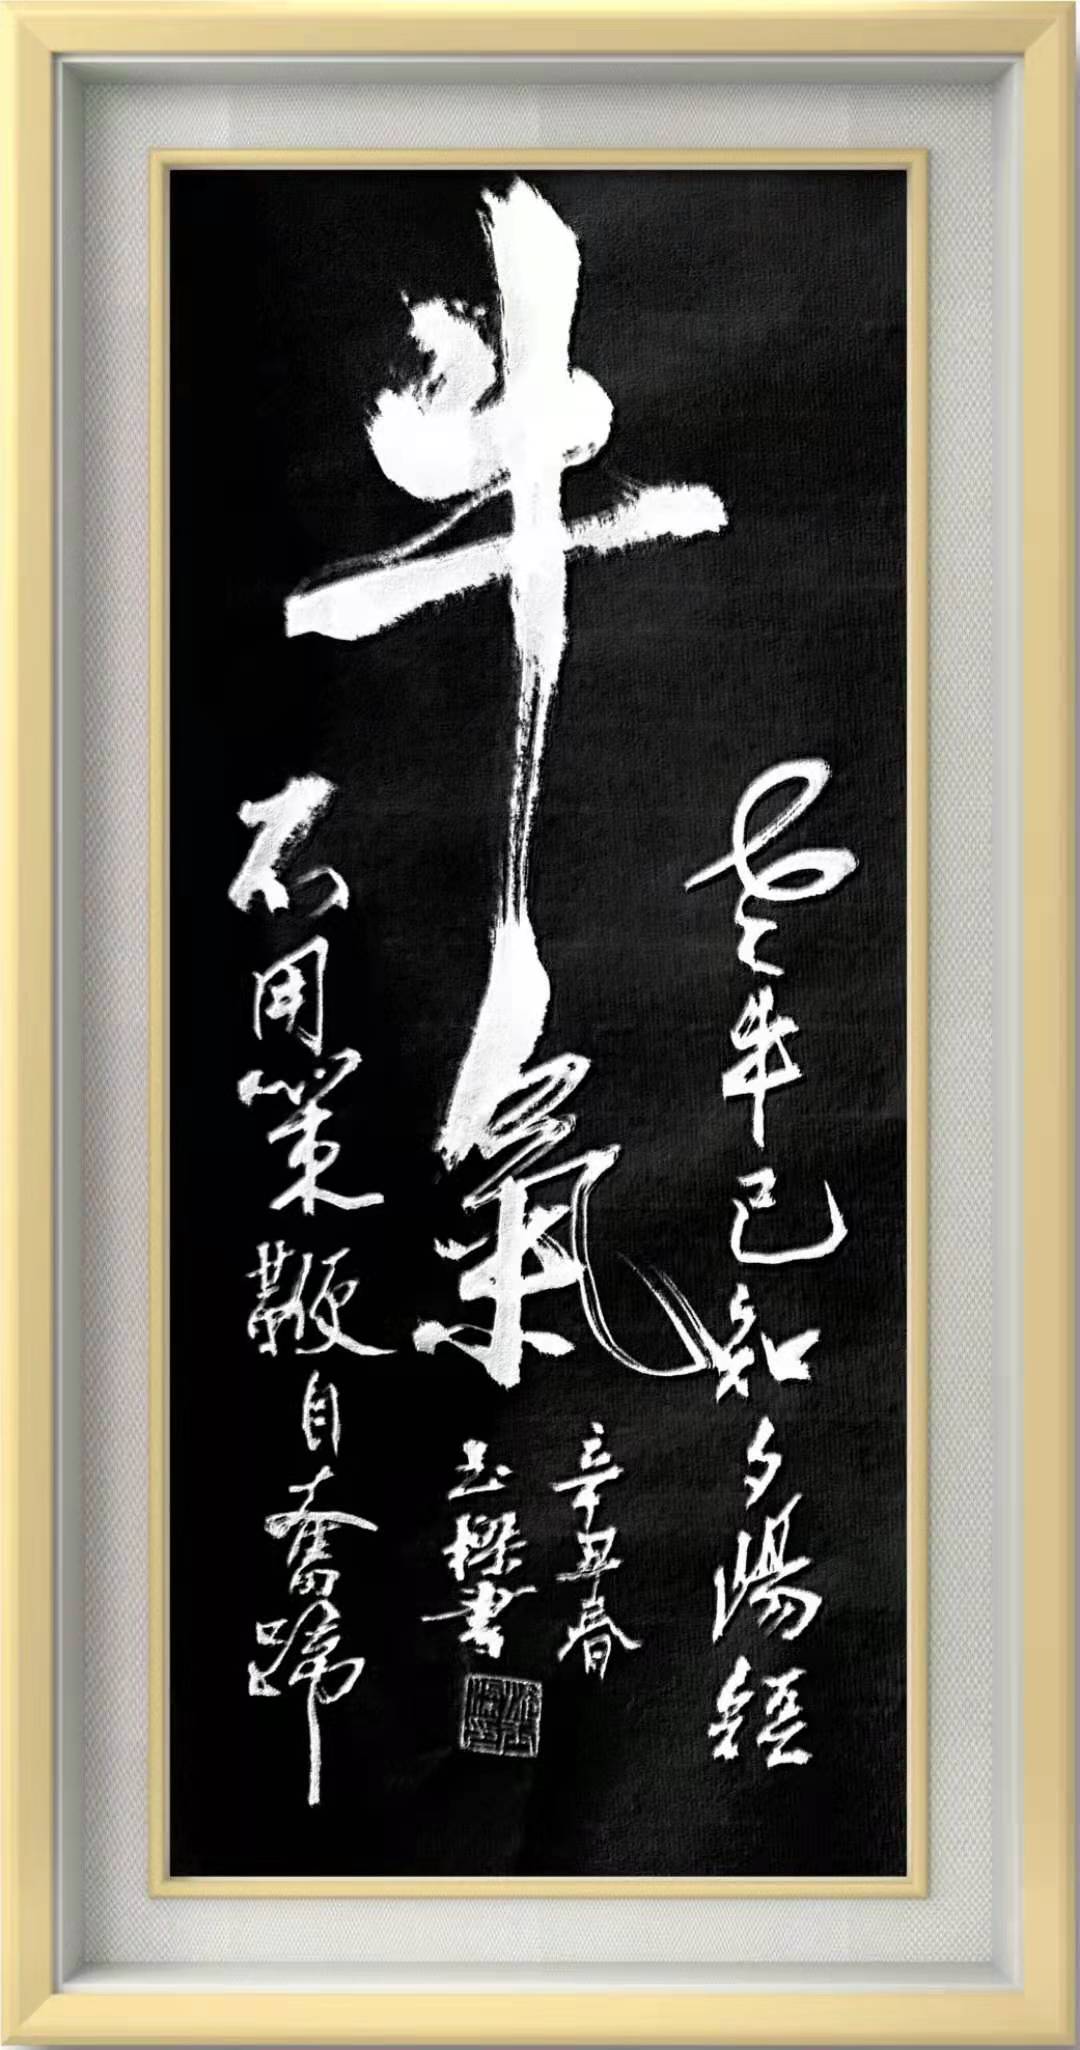 牛氣
老牛已知夕陽短
不用策鞭自奮蹄
辛丑春
志樑書